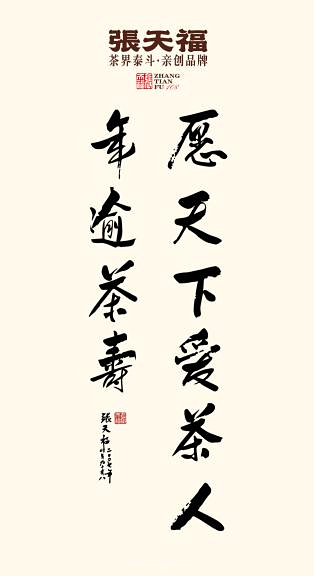 張天福
茶界泰斗·亲创品牌
ZHANG
TIAN
FU 108
愿天下爱茶人
年逾茶壽
張天福
二〇〇七年